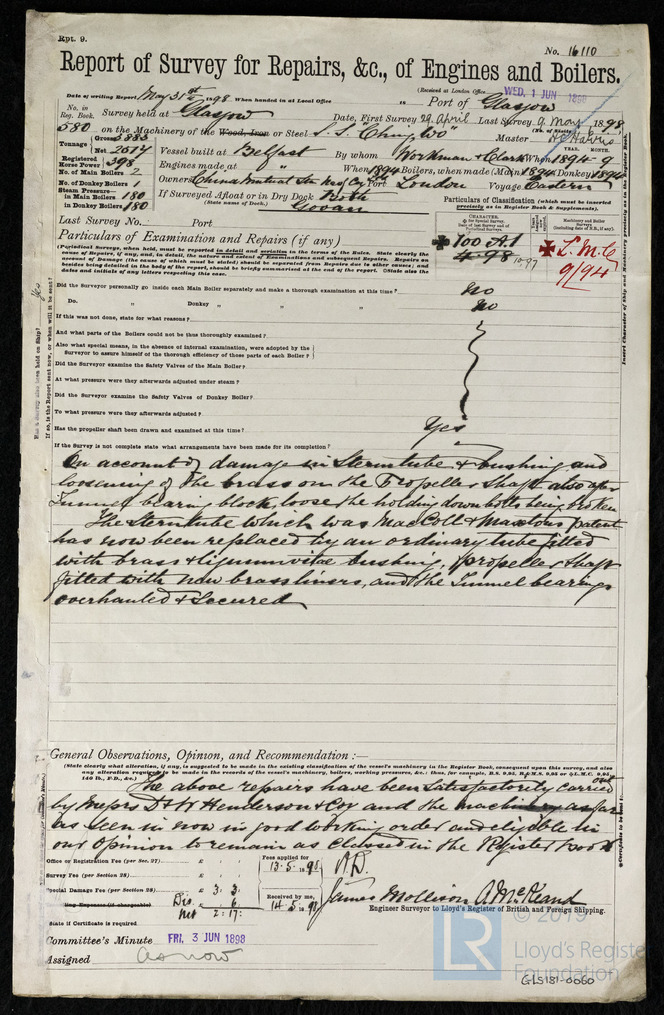 Rpt. 9.
No. 16110
Report of Survey for Repairs, &c., of Engines and Boilers.
(Received at London Office WED. 1 JUN 1898
Date of writing Report May 31st 1898 When handed in at Local Office 18 Port of Glasgow
No. in Reg. Book. Survey held at Glasgow Date, First Survey 29 April Last Survey 9 May 1898
580 on the Machinery of the Wood, Iron or Steel S.S. "Ching Wo" Master
Tonnage Gross 3883 Net 2517 Vessel built at Belfast By whom Workman & Clark When 1894-9
Registered Horse Power 398 Engines made at " When 1894
No. of Main Boilers 2 Boilers, when made (Main) 1894 (Donkey) 1894
No. of Donkey Boilers 1 Owners China Mutual Stm Nav Coy Port London Voyage Eastern
Steam Pressure in Main Boilers 180 If Surveyed Afloat or in Dry Dock Both
in Donkey Boilers 180 (State name of Dock.) Govan
Particulars of Classification (which must be inserted precisely as in Register Book & Supplements).
Last Survey No. Port
Particulars of Examination and Repairs (if any)
CHARACTER.
Machinery and Boiler Surveys (Including date of N.B., if any).
100 A1
4-98
10,97
L.M.C.
9/94
(Periodical Surveys, when held, must be reported in detail and seriatim in the terms of the Rules. State clearly the
cause of Repairs, if any, and, in detail, the nature and extent of Examinations and subsequent Repairs. Repairs on
account of Damage (the cause of which must be stated) should be separated from Repairs due to other causes; and
besides being detailed in the body of the report, should be briefly summarized at the end of the report. State also the
dates and initials of any letters respecting this case.
Did the Surveyor personally go inside each Main Boiler separately and make a thorough examination at this time? No
Do. " Donkey " " " No
If this was not done, state for what reasons?
And what parts of the Boilers could not be thus thoroughly examined?
Also what special means, in the absence of internal examination, were adopted by the
Surveyor to assure himself of the thorough efficiency of those parts of each Boiler?
Did the Surveyor examine the Safety Valves of the Main Boiler?
At what pressure were they afterwards adjusted under steam?
Did the Surveyor examine the Safety Valves of Donkey Boiler?
To what pressure were they afterwards adjusted?
Has the propeller shaft been drawn and examined at this time? Yes
If the Survey is not complete state what arrangements have been made for its completion?
On account of damage in Sterntube & bushing and
loosening of the brass on the Propeller Shaft also after
Tunnel bearing block, loose the holding down bolts being broken
The Sterntube which was MacColl & patent
has now been replaced by an ordinary tube fitted
with brass & lignumvitae bushing, propeller shaft
fitted with new brass liners, and the Tunnel bearings
overhauled & Secured
Insert Character of Ship and Machinery precisely as in the Register Book
Has a Survey also been held on Ship? Yes
If so, is the Report sent now, or when will it be sent?
General Observations, Opinion, and Recommendation:—
(State clearly what alteration, if any, is suggested to be made in the existing classification of the vessel's machinery in the Register Book, consequent upon this survey, and also
any alteration required to be made in the records of the vessel's machinery, boilers, working pressures, &c.: thus, for example, B.S. 9,95, B.&M.S. 9,95 or L.M.C. 9,95,
140 lb., F.D., &c.)
The above repairs have been Satisfactorily carried out
by Messrs D & W Henderson & Coy and the machinery as far
as seen is now in good working order and eligible in
our opinion to remain as Classed in the Register Book
Office or Registration Fee (per Sec. 27). £ : : Fees applied for 13.5.1898
Survey Fee (per Section 28) £ : :
Special Damage Fee (per Section 28) £ 3 : 3 : Received by me, 14.5.1898
Travelling Expenses (if chargeable) Dis. £ : 6 :
Net 2 : 17 :
James Mollison A. McKeand
Engineer Surveyor to Lloyd's Register of British and Foreign Shipping.
State if Certificate is required
Committee's Minute FRI. 3 JUN 1898
Assigned as now
LR
© 2019
Lloyd's Register
Foundation
GLS181-0060